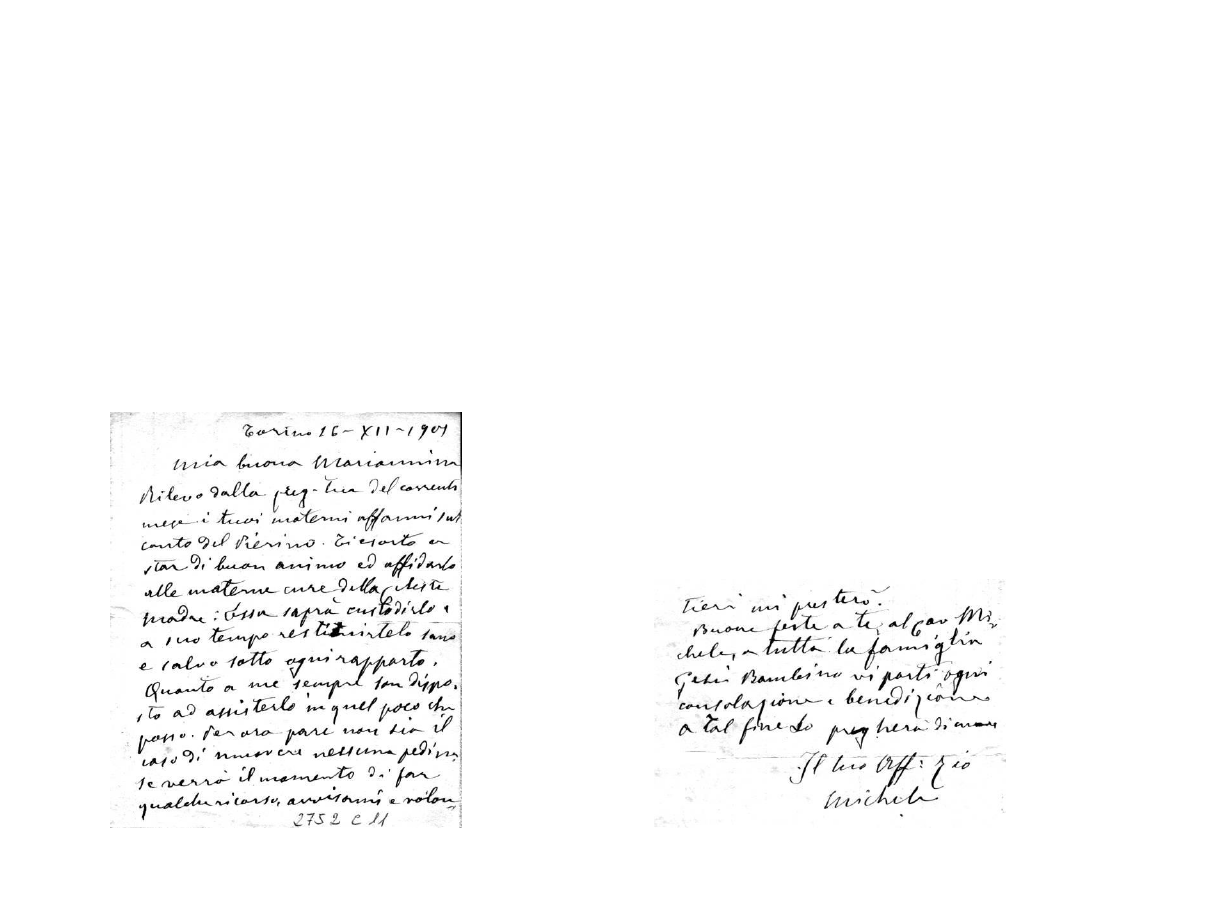 Torino 16-XII-1901
Mia buona Mariannina
Rilevo dalla preg. tua del corrente
mese i tuoi materni affanni sul
conto del Pierino. Ti esorto a
star di buon animo ed affidarlo
alle materne cure della Celeste
Madre: Essa saprà custodirlo e
a suo tempo restituirtelo sano
e salvo sotto ogni rapporto.
Quanto a me sempre son dispo-
sto ad assisterlo in quel poco che
posso. Per ora pare non sia il
caso di muovere nessuna pedina
se verrà il momento di far
qualche ricorso, avvisami e volon-
2752 C 11
tieri mi presterò.
Buone feste a te, al Cav Mi-
chele, a tutta la famiglia
Gesù Bambino vi porti ogni
consolazione e benedizione
a tal fine Lo pregherò di cuore
Il tuo Aff: zio
Michele